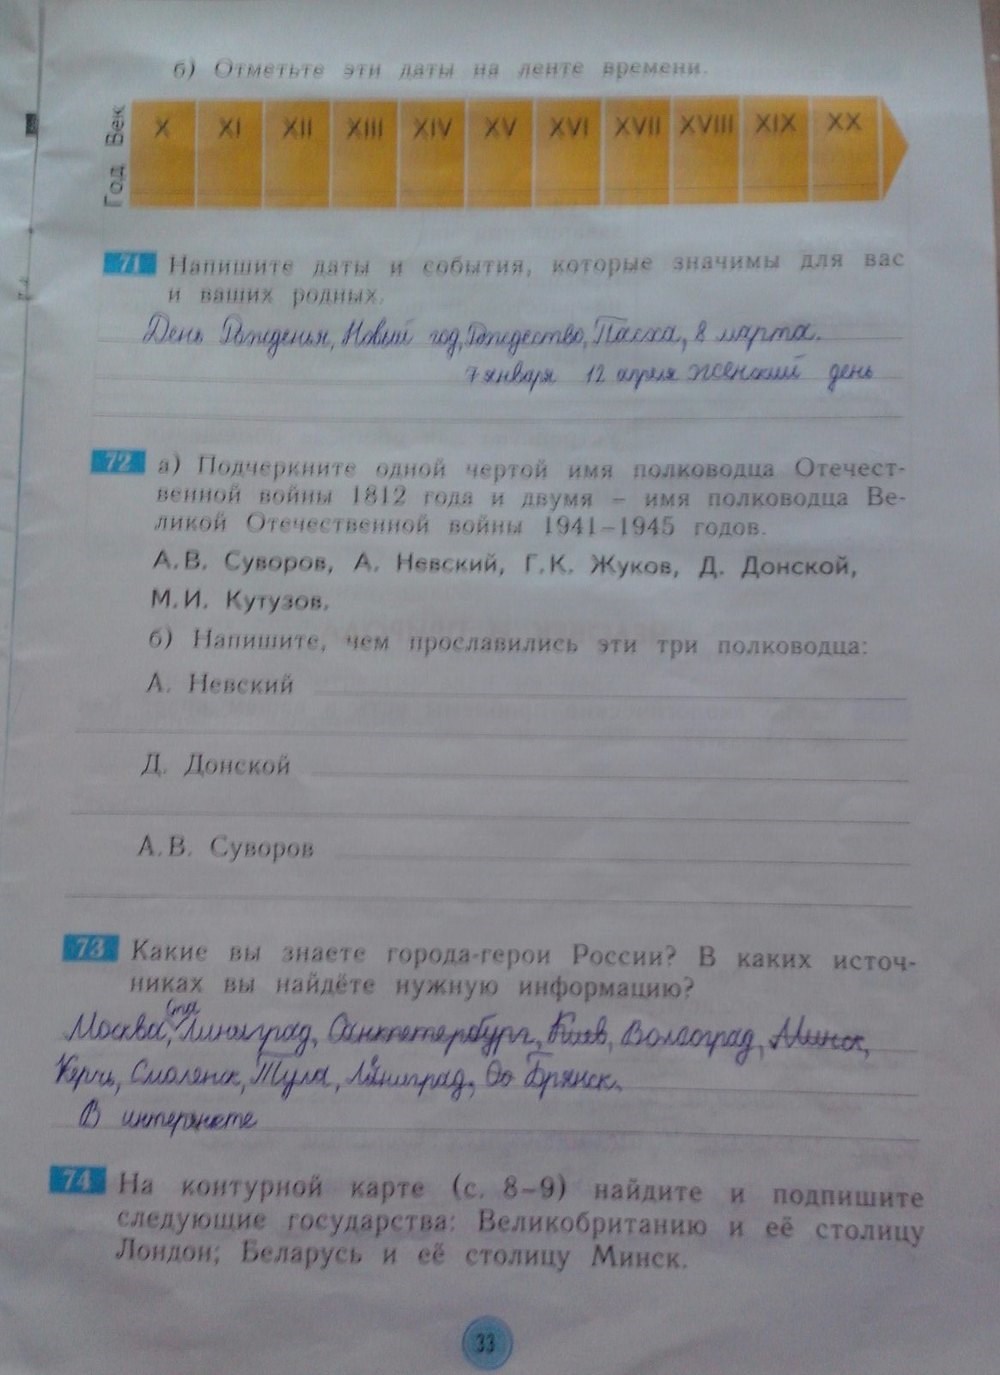 б) Отметьте эти даты на ленте времени.
Год Век X XI XII XIII XIV XV XVI XVII XVIII XIX XX
71 Напишите даты и события, которые значимы для вас
и ваших родных.
День Рождения, Новый год, Рождество, Пасха, 8 марта.
7 января 12 апреля женский день
72 а) Подчеркните одной чертой имя полководца Отечест-
венной войны 1812 года и двумя – имя полководца Ве-
ликой Отечественной войны 1941–1945 годов.
А.В. Суворов, А. Невский, Г.К. Жуков, Д. Донской,
М.И. Кутузов.
б) Напишите, чем прославились эти три полководца:
А. Невский
Д. Донской
А.В. Суворов
73 Какие вы знаете города-герои России? В каких источ-
никах вы найдёте нужную информацию?
Москва, Сталинград, Санкпетербург, Киев, Волгоград, Минск,
Керчь, Смоленск, Тула, Лениград, Брянск.
В интернете
74 На контурной карте (с. 8–9) найдите и подпишите
следующие государства: Великобританию и её столицу
Лондон; Беларусь и её столицу Минск.
33